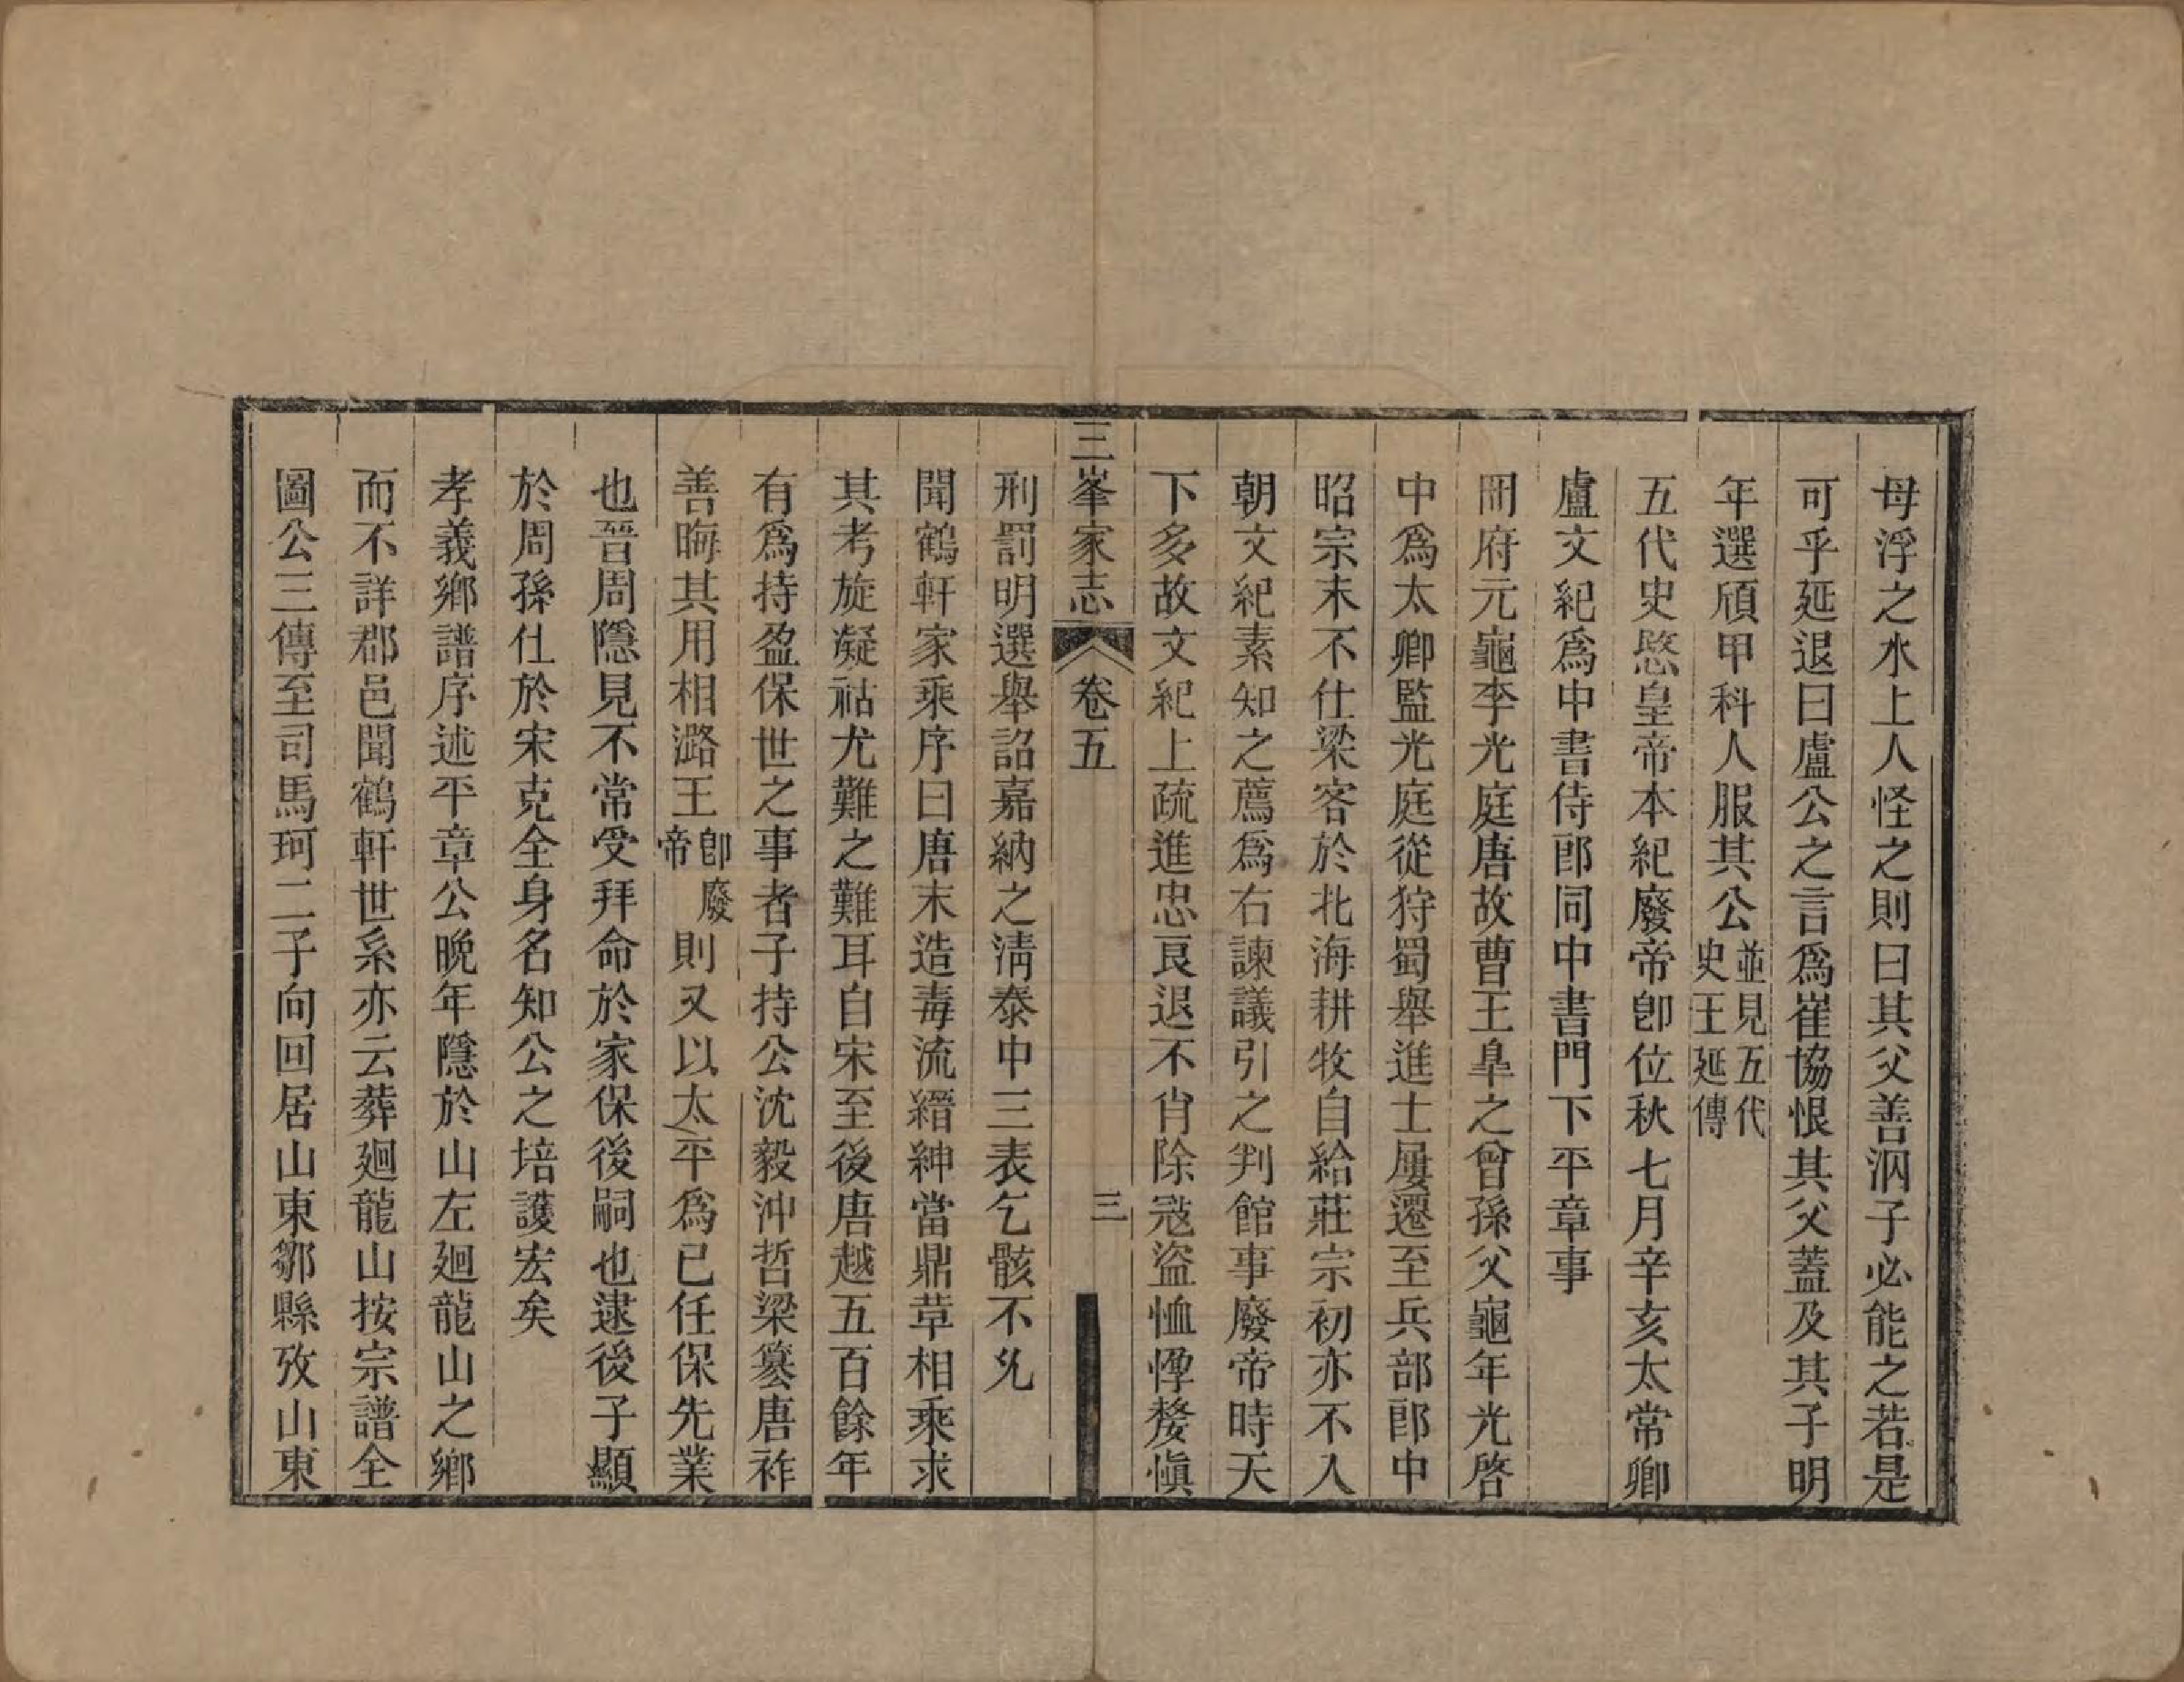 母浮之水上人怪之則曰其父善泅子必能之若是
可乎延退曰盧公之言爲崔協恨其父蓋及其子明
年選頎甲科人服其公並見五代史王延傳
五代史愍皇帝本紀廢帝卽位秋七月辛亥太常卿
盧文紀爲中書侍郎同中書門下平章事
冊府元龜李光庭唐故曹王臯之曾孫父龜年光啓
中爲太卿監光庭從狩蜀舉進士屢遷至兵部郎中
昭宗末不仕梁客於北海耕牧自給莊宗初亦不入
朝文紀素知之薦爲右諫議引之判館事廢帝時天
下多故文紀上疏進忠良退不肖除寇盜恤惸嫠愼
三峯家志 卷五 三
刑罰明選舉詔嘉納之淸泰中三表乞骸不允
聞鶴軒家乘序曰唐末造毒流縉紳當鼎草相乘求
其考旋凝祜尤難之難耳自宋至後唐越五百餘年
有爲持盈保世之事者子持公沈毅沖哲梁簒唐祚
善晦其用相潞王卽廢帝則又以太平爲已任保先業
也晉周隱見不常受拜命於家保後嗣也逮後子顯
於周孫仕於宋克全身名知公之培護宏矣
孝義鄉譜序述平章公晚年隱於山左廻龍山之鄉
而不詳郡邑聞鶴軒世系亦云葬廻龍山按宗譜全
圖公三傳至司馬珂二子向回居山東鄒縣攷山東